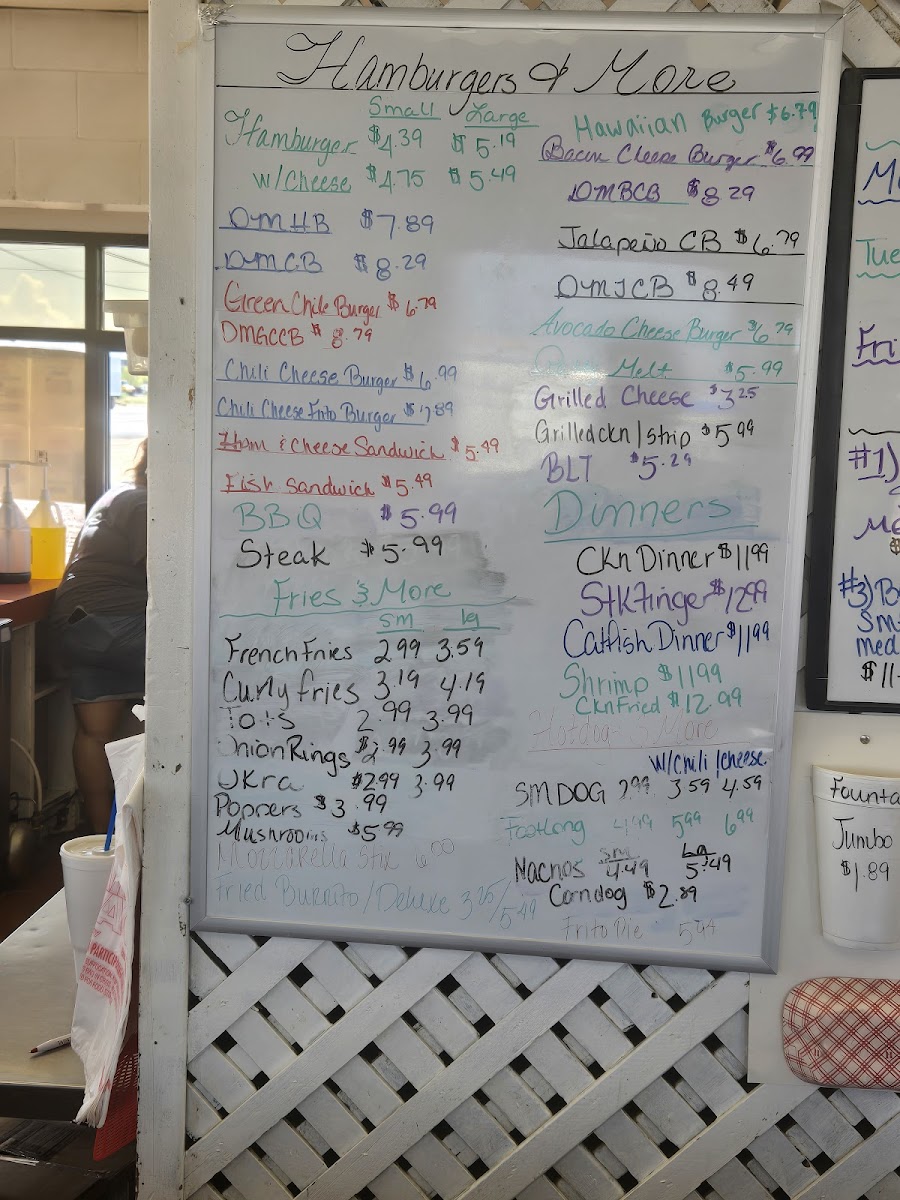 Hamburgers & More
Small Large
Hamburger $4.39 $5.19
w/Cheese $4.75 $5.49
DMHB $7.89
DMCB $8.29
Green Chile Burger $6.79
DMGCCB $8.79
Chili Cheese Burger $6.99
Chili Cheese Frito Burger $7.89
Ham & Cheese Sandwich $5.49
Fish Sandwich $5.49
BBQ $5.99
Steak $5.99
Fries & More
sm lg
French Fries 2.99 3.59
Curly fries 3.19 4.19
Tots 2.99 3.99
Onion Rings $2.99 3.99
Okra $2.99 3.99
Poppers $3.99
Mushrooms $5.99
Mozzarella Stix 6.00
Fried Burrito/Deluxe 3.25/5.49
Hawaiian Burger $6.79
Bacon Cheese Burger $6.99
DMBCB $8.29
Jalapeño CB $6.79
DMJCB $8.49
Avocado Cheese Burger $6.79
Melt $5.99
Grilled Cheese $3.25
Grilled ckn/strip $5.99
BLT $5.29
Dinners
Ckn Dinner $11.99
Stk Finger $12.99
Catfish Dinner $11.99
Shrimp $11.99
Ckn Fried $12.99
Hotdogs & More
w/Chili/cheese
SM DOG 2.99 3.59 4.59
Footlong 4.99 5.99 6.99
sm La
Nachos 4.49 5.49
Corndog $2.89
Frito Pie
Tue
Fri
#1)
#3) B
Sm
med
$11.
Founta
Jumbo
$1.89